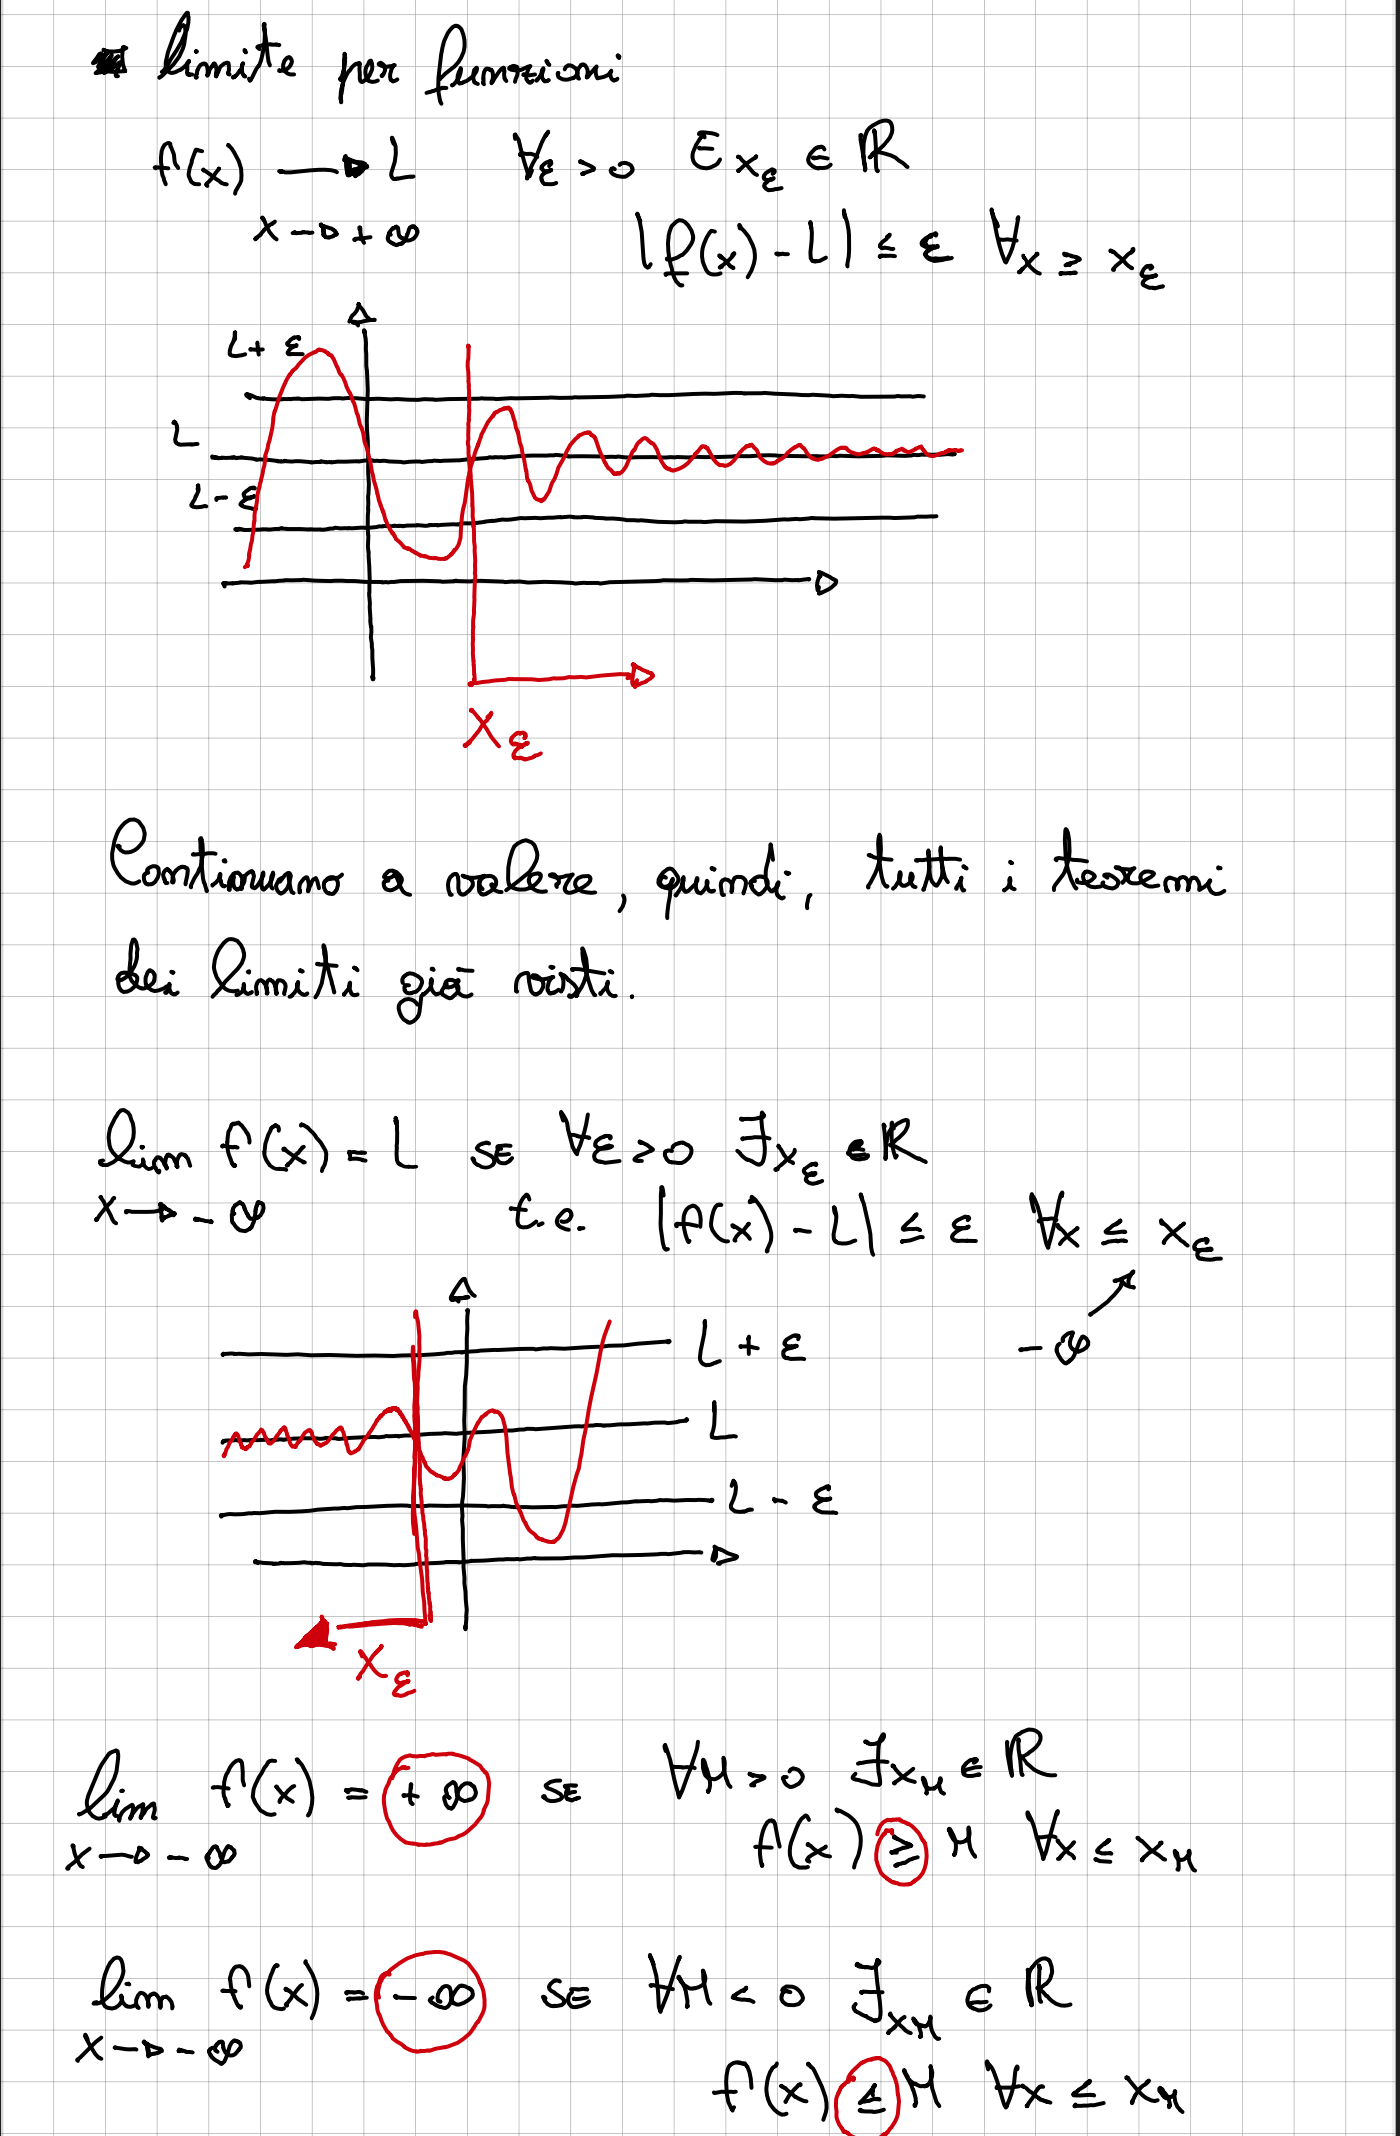 limite per funzioni
f(x) → L ∀ε > 0 Ex_ε ∈ ℝ
x → +∞
|f(x) - L| ≤ ε ∀x ≥ x_ε
L + ε
L
L - ε
x_ε
Continuano a valere, quindi, tutti i teoremi
dei limiti già visti.
lim f(x) = L SE ∀ε > 0 ∃x_ε ∈ ℝ
x → -∞ t.c. |f(x) - L| ≤ ε ∀x ≤ x_ε
-∞
L + ε
L
L - ε
x_ε
lim f(x) = +∞ SE ∀M > 0 ∃x_M ∈ ℝ
x → -∞ f(x) ≥ M ∀x ≤ x_M
lim f(x) = -∞ SE ∀M < 0 ∃x_M ∈ ℝ
x → -∞
f(x) ≤ M ∀x ≤ x_M